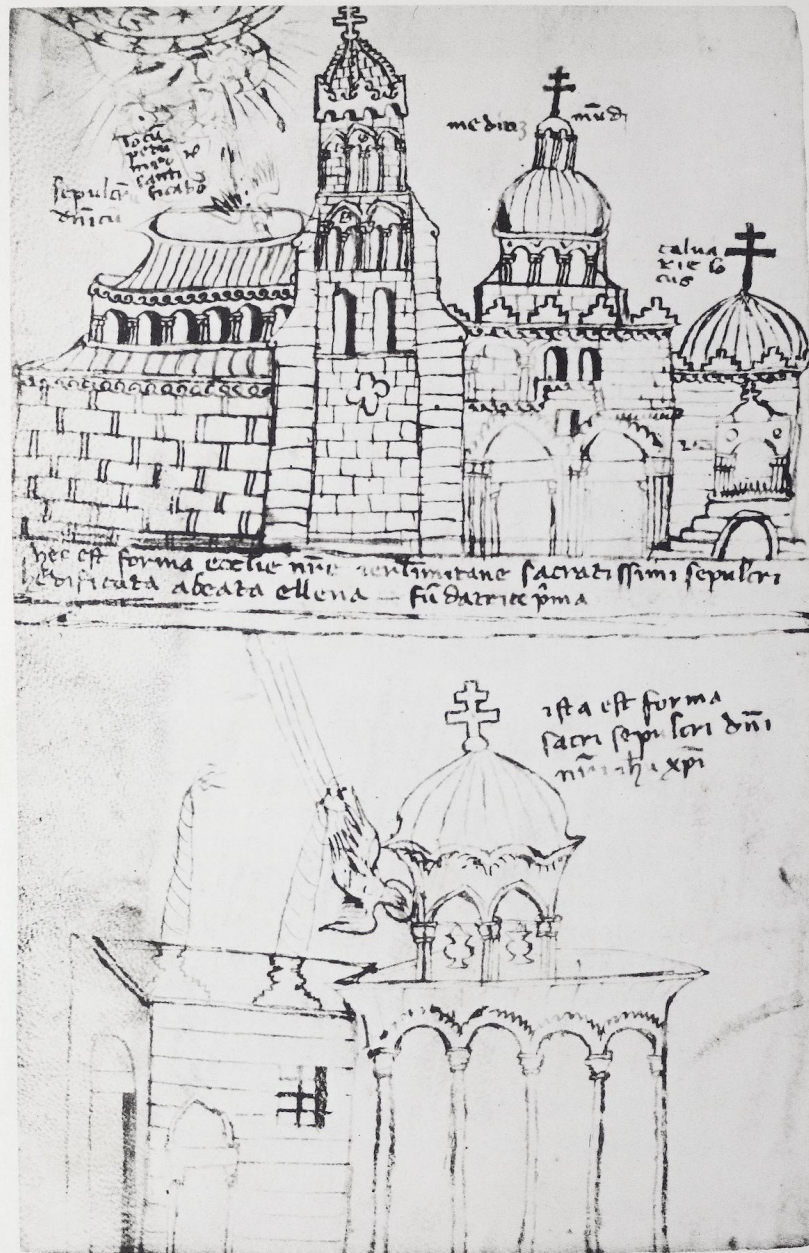 sepulcrū
dn̄icū
locū
santi
ficato
mediuʒ mūdi
calua
rie lo
cus
hec est forma ecclie nr̄e ierl̄imitane sacratissimi sepulcri
edificata abeata ellena fūdatrice pma
ista est forma
sacri sepulcri dn̄i
nr̄i ih̄u xp̄i